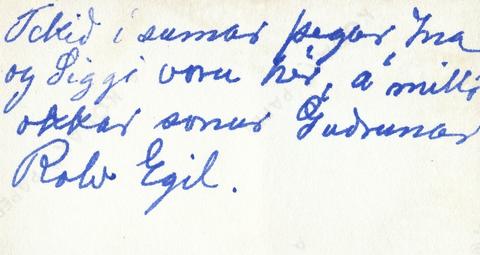 Tekið í sumar þegar Ína
og Siggi voru hér, á milli
okkar sonur Guðrunar
Rolv Egil.